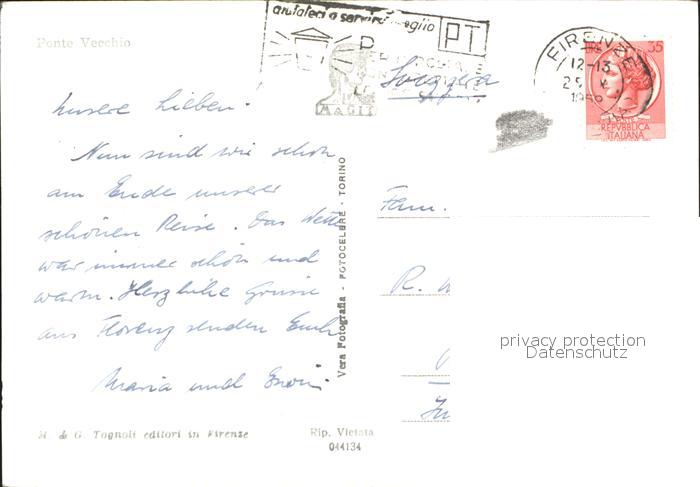 Ponte Vecchio
aiutateci a servirvi meglio
PT
FIRENZE
12-13
1966
35
REPVBBLICA
ITALIANA
Svizzera
Unsere Lieben!
Nun sind wir schon
am Ende unserer
schönen Reise. Das Wetter
war immer schön und
warm. Herzliche Grüsse
aus Florenz senden Euch
Maria und Erwin
Vera Fotografia - FOTOCELERE - TORINO
Fam.
R.
privacy protection
Datenschutz
M. & G. Tognoli editori in Firenze
Rip. Vietata
044134